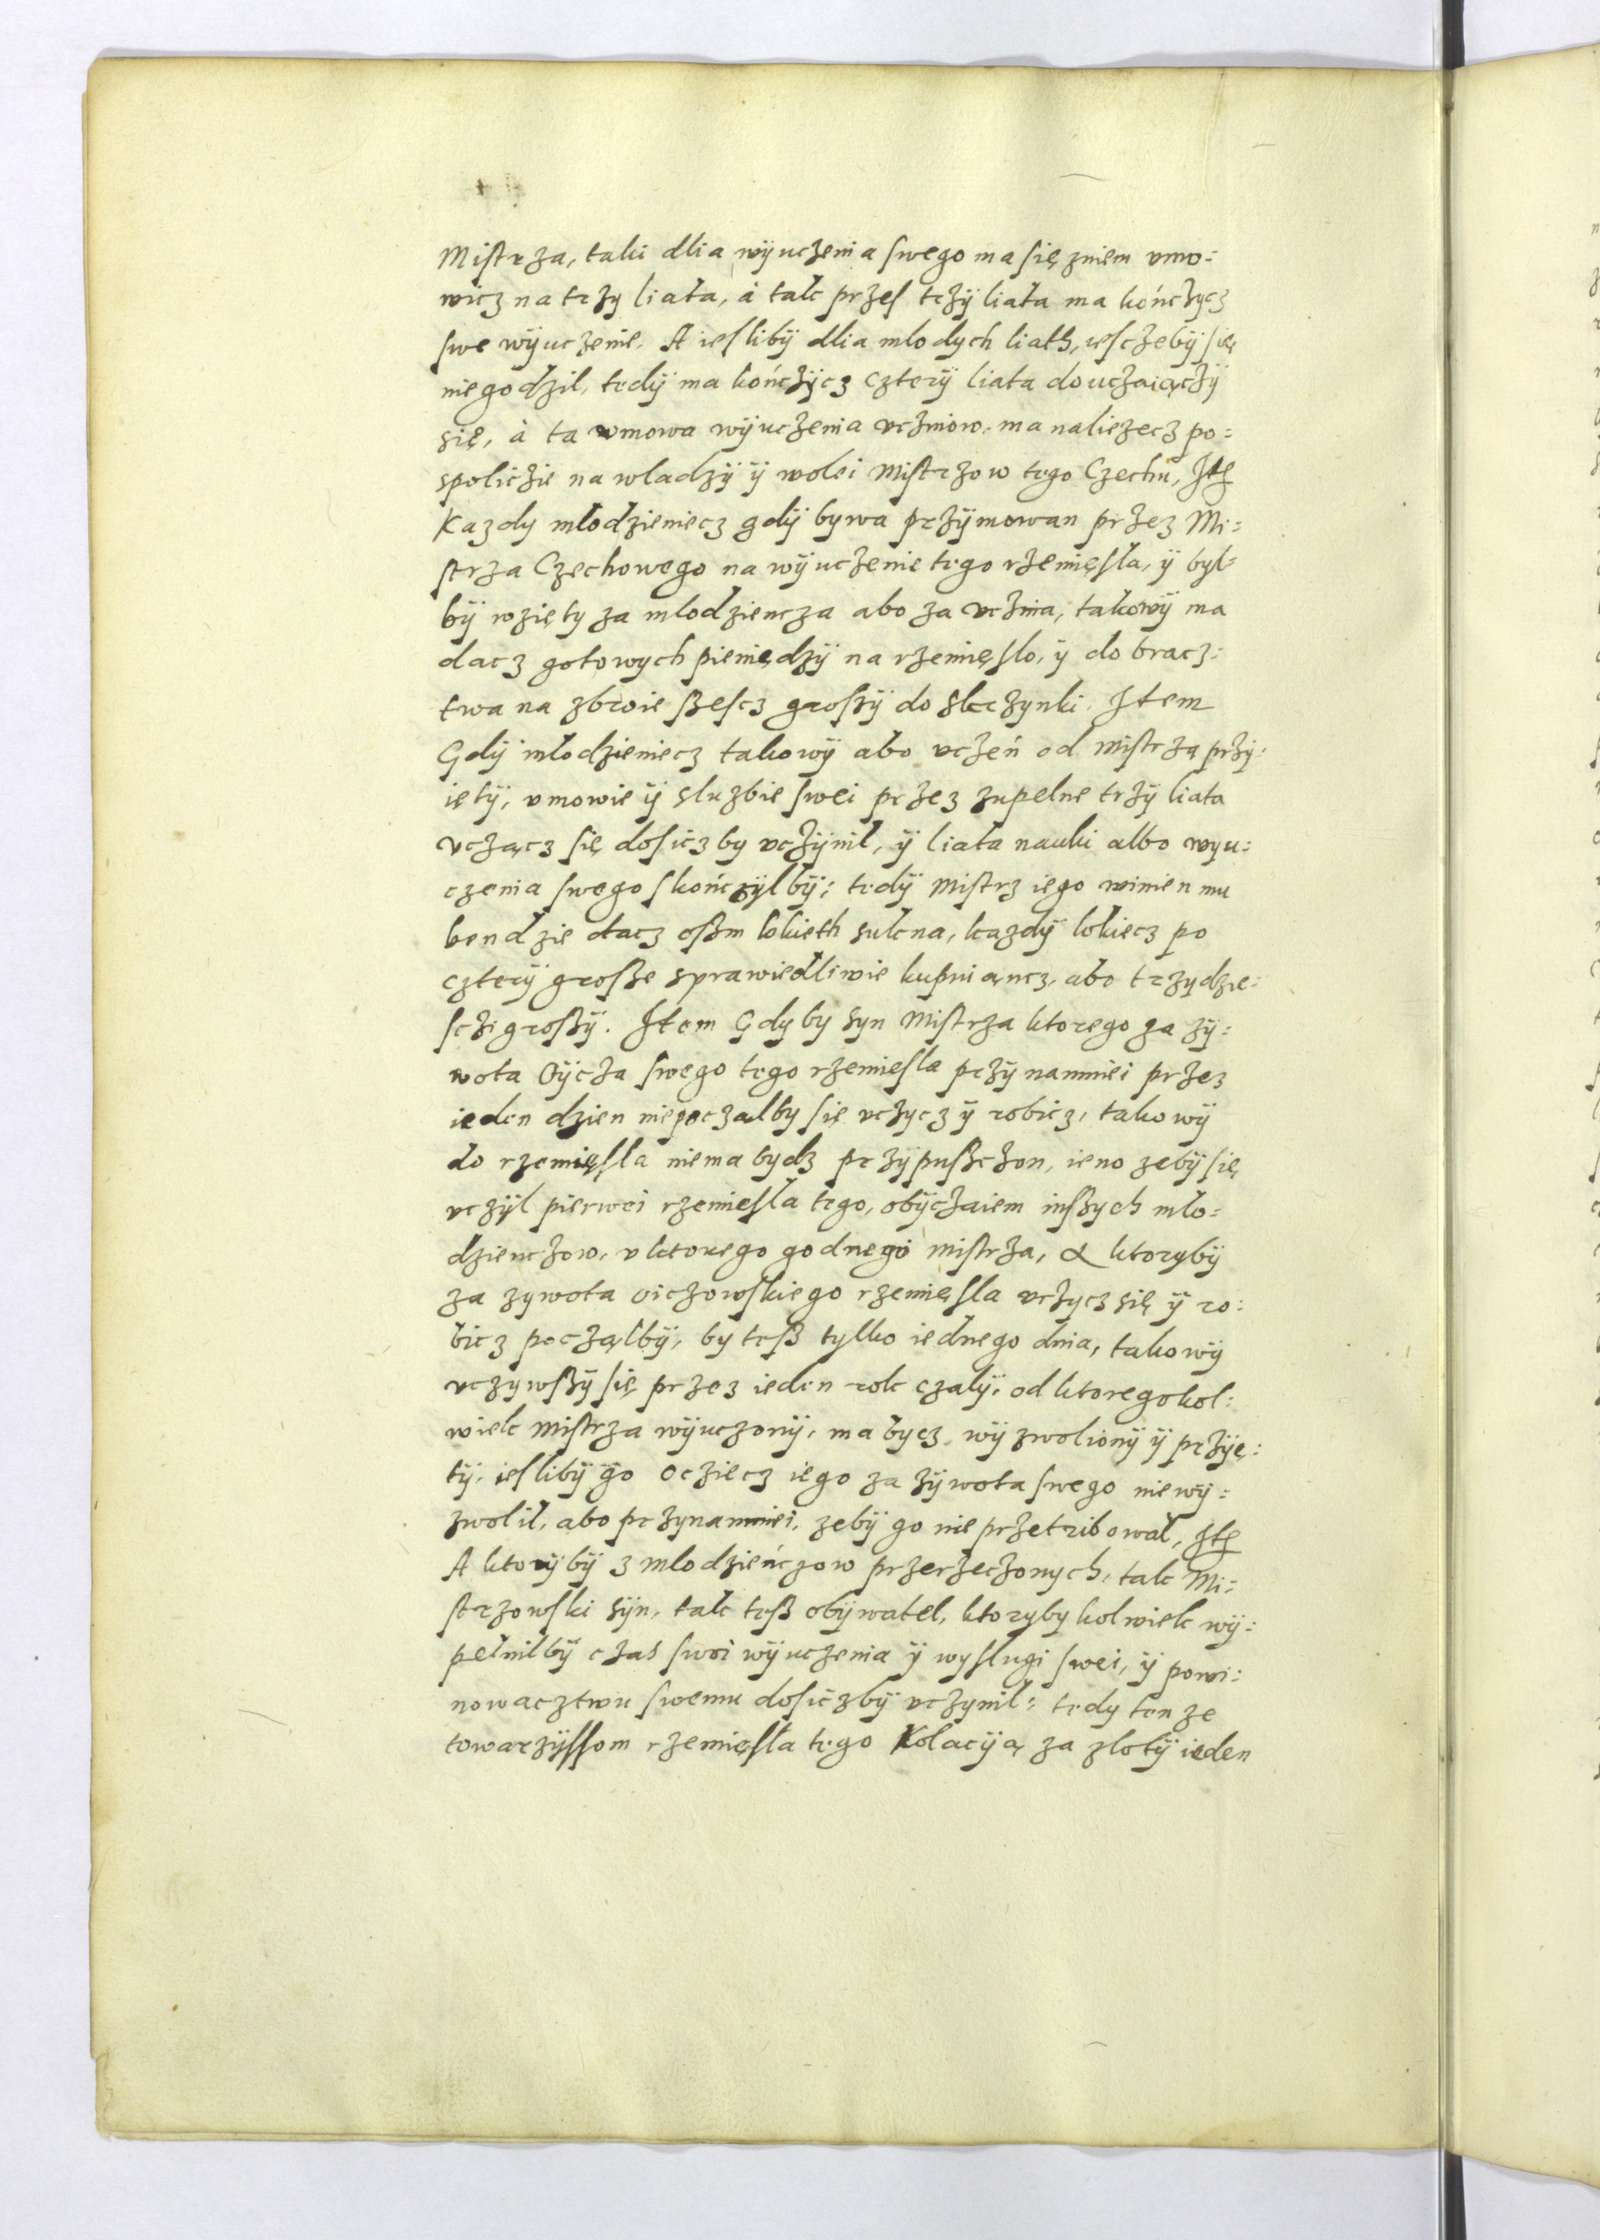 Mistrza, taki dlia wÿuczenia swego ma się zniem vmo:
wicz na trzy liata, á tak przes trzÿ liata ma kończycz
swe wÿuczenie. A iesliby dlia mlodych liath, iesczebÿ się
niegodzil, tedÿ ma kończÿcz czterÿ liata douczaiączÿ
się, á ta vmowa wÿuczenia vczniow. ma naliezecz po:
spoliczie na wladzÿ ÿ wolei Mistrzow tego Czechu, Itē
Kazdy mlodzieniecz gdÿ bywa przÿmowan przez Mi:
strza Czechowego na wÿuczenie tego rzemięsla, ÿ byl:
bÿ wzięty za mlodziencza abo za vcznia, takowÿ ma
dacz gotowych pieniędzÿ na rzemięslo, ÿ do bracz:
twa na zbroie szescz groszÿ do skrzynki. Item
Gdÿ mlodzieniecz takowÿ abo vczeń od Mistrza przÿ:
iętÿ, vmowie ÿ sluzbie swei przez zupelne trzÿ liata
vcząncz się dosicz by vczÿnil, ÿ liata nauki albo wyu:
czenia swego skończÿlbÿ; tedÿ Mistrz iego winien mu
bendzie dacz oszm lokieth sukna, kazdÿ lokiecz po
czterÿ grosze sprawiedliwie kupuiąncz, abo trzÿdzie:
sczi groszÿ. Item Gdyby syn Mistrza ktorego za zÿ:
wota Oÿcza swego tego rzemiesla przÿnamniei przez
ieden dzien niepoczalby się vczycz ÿ robicz, takowÿ
do rzemięsla niema bydz przÿpuszczon, ieno zebÿ się
vczÿl pierwei rzemiesla tego, obÿczaiem inszych mlo:
dzienczow, v ktorego godnego mistrza, A ktorybÿ
za zywota oiczowskiego rzemięsla vczycz się ÿ ro:
bicz począlbÿ, by tesz tylko iednego dnia, takowÿ
vczywszÿ się przez ieden rok czalÿ, od ktoregokol:
wiek Mistrza wÿuczonÿ, ma bycz wÿzwolionÿ ÿ przÿę:
tÿ. ieslibÿ go Ocziecz iego za zÿwota swego niewÿ:
zwolil, abo przynamniei, zebÿ go nie przetribowal, Itē
A ktorÿbÿ z mlodzieńczow przerzeczonych, tak Mi:
strzowski sÿn, tak tesz obÿwatel, ktorybykolwiek wÿ:
pelnilbÿ czas swoi wÿuczenia ÿ wyslugi swei, ÿ powi:
nowacztwu swemu dosiczbÿ vczynil: tedy ten ze
towarzÿssom rzemięsla tego Kolaciją za zlotÿ ieden